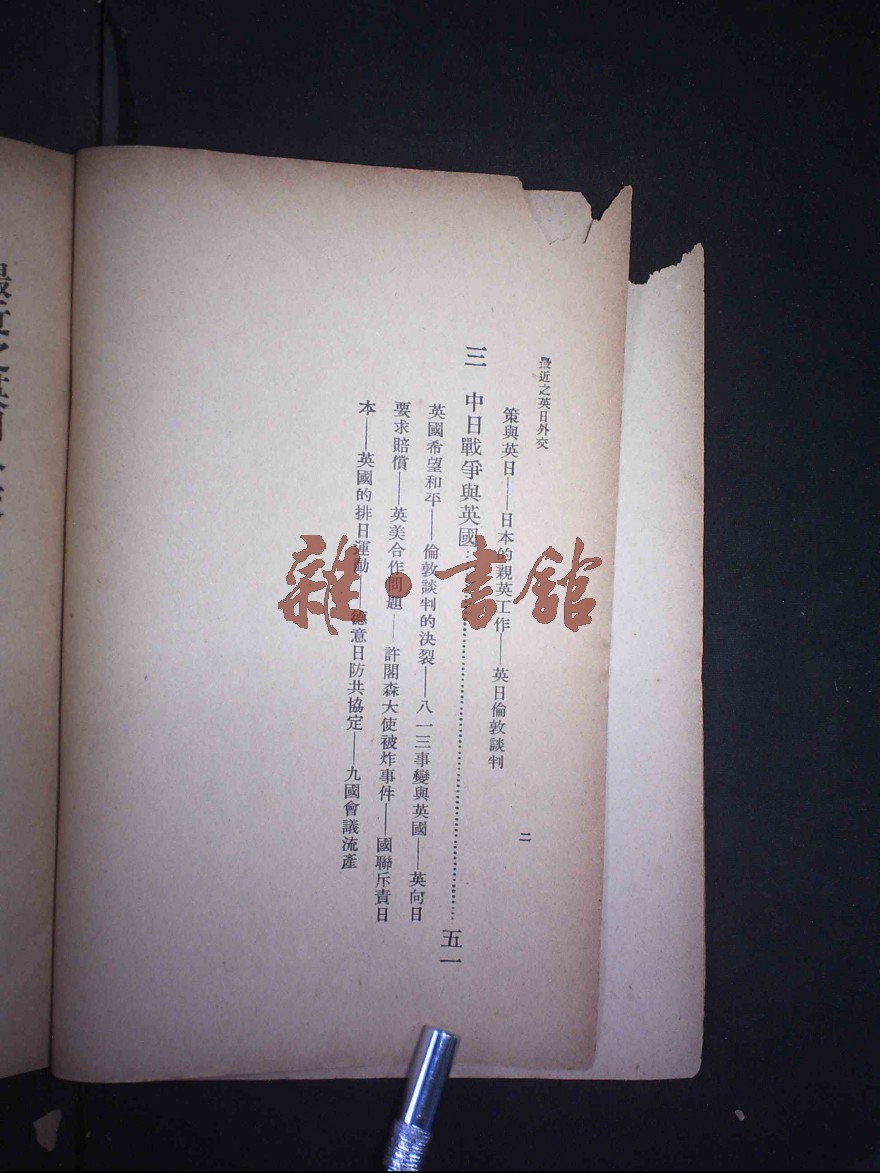 最近之英日外交
二
策與英日——日本的親英工作——英日倫敦談判
三　中日戰爭與英國……………………五一
英國希望和平——倫敦談判的決裂——八一三事變與英國——英向日
要求賠償——英美合作問題——許閣森大使被炸事件——國聯斥責日
本——英國的排日運動——德意日防共協定——九國會議流產
雜·書舘